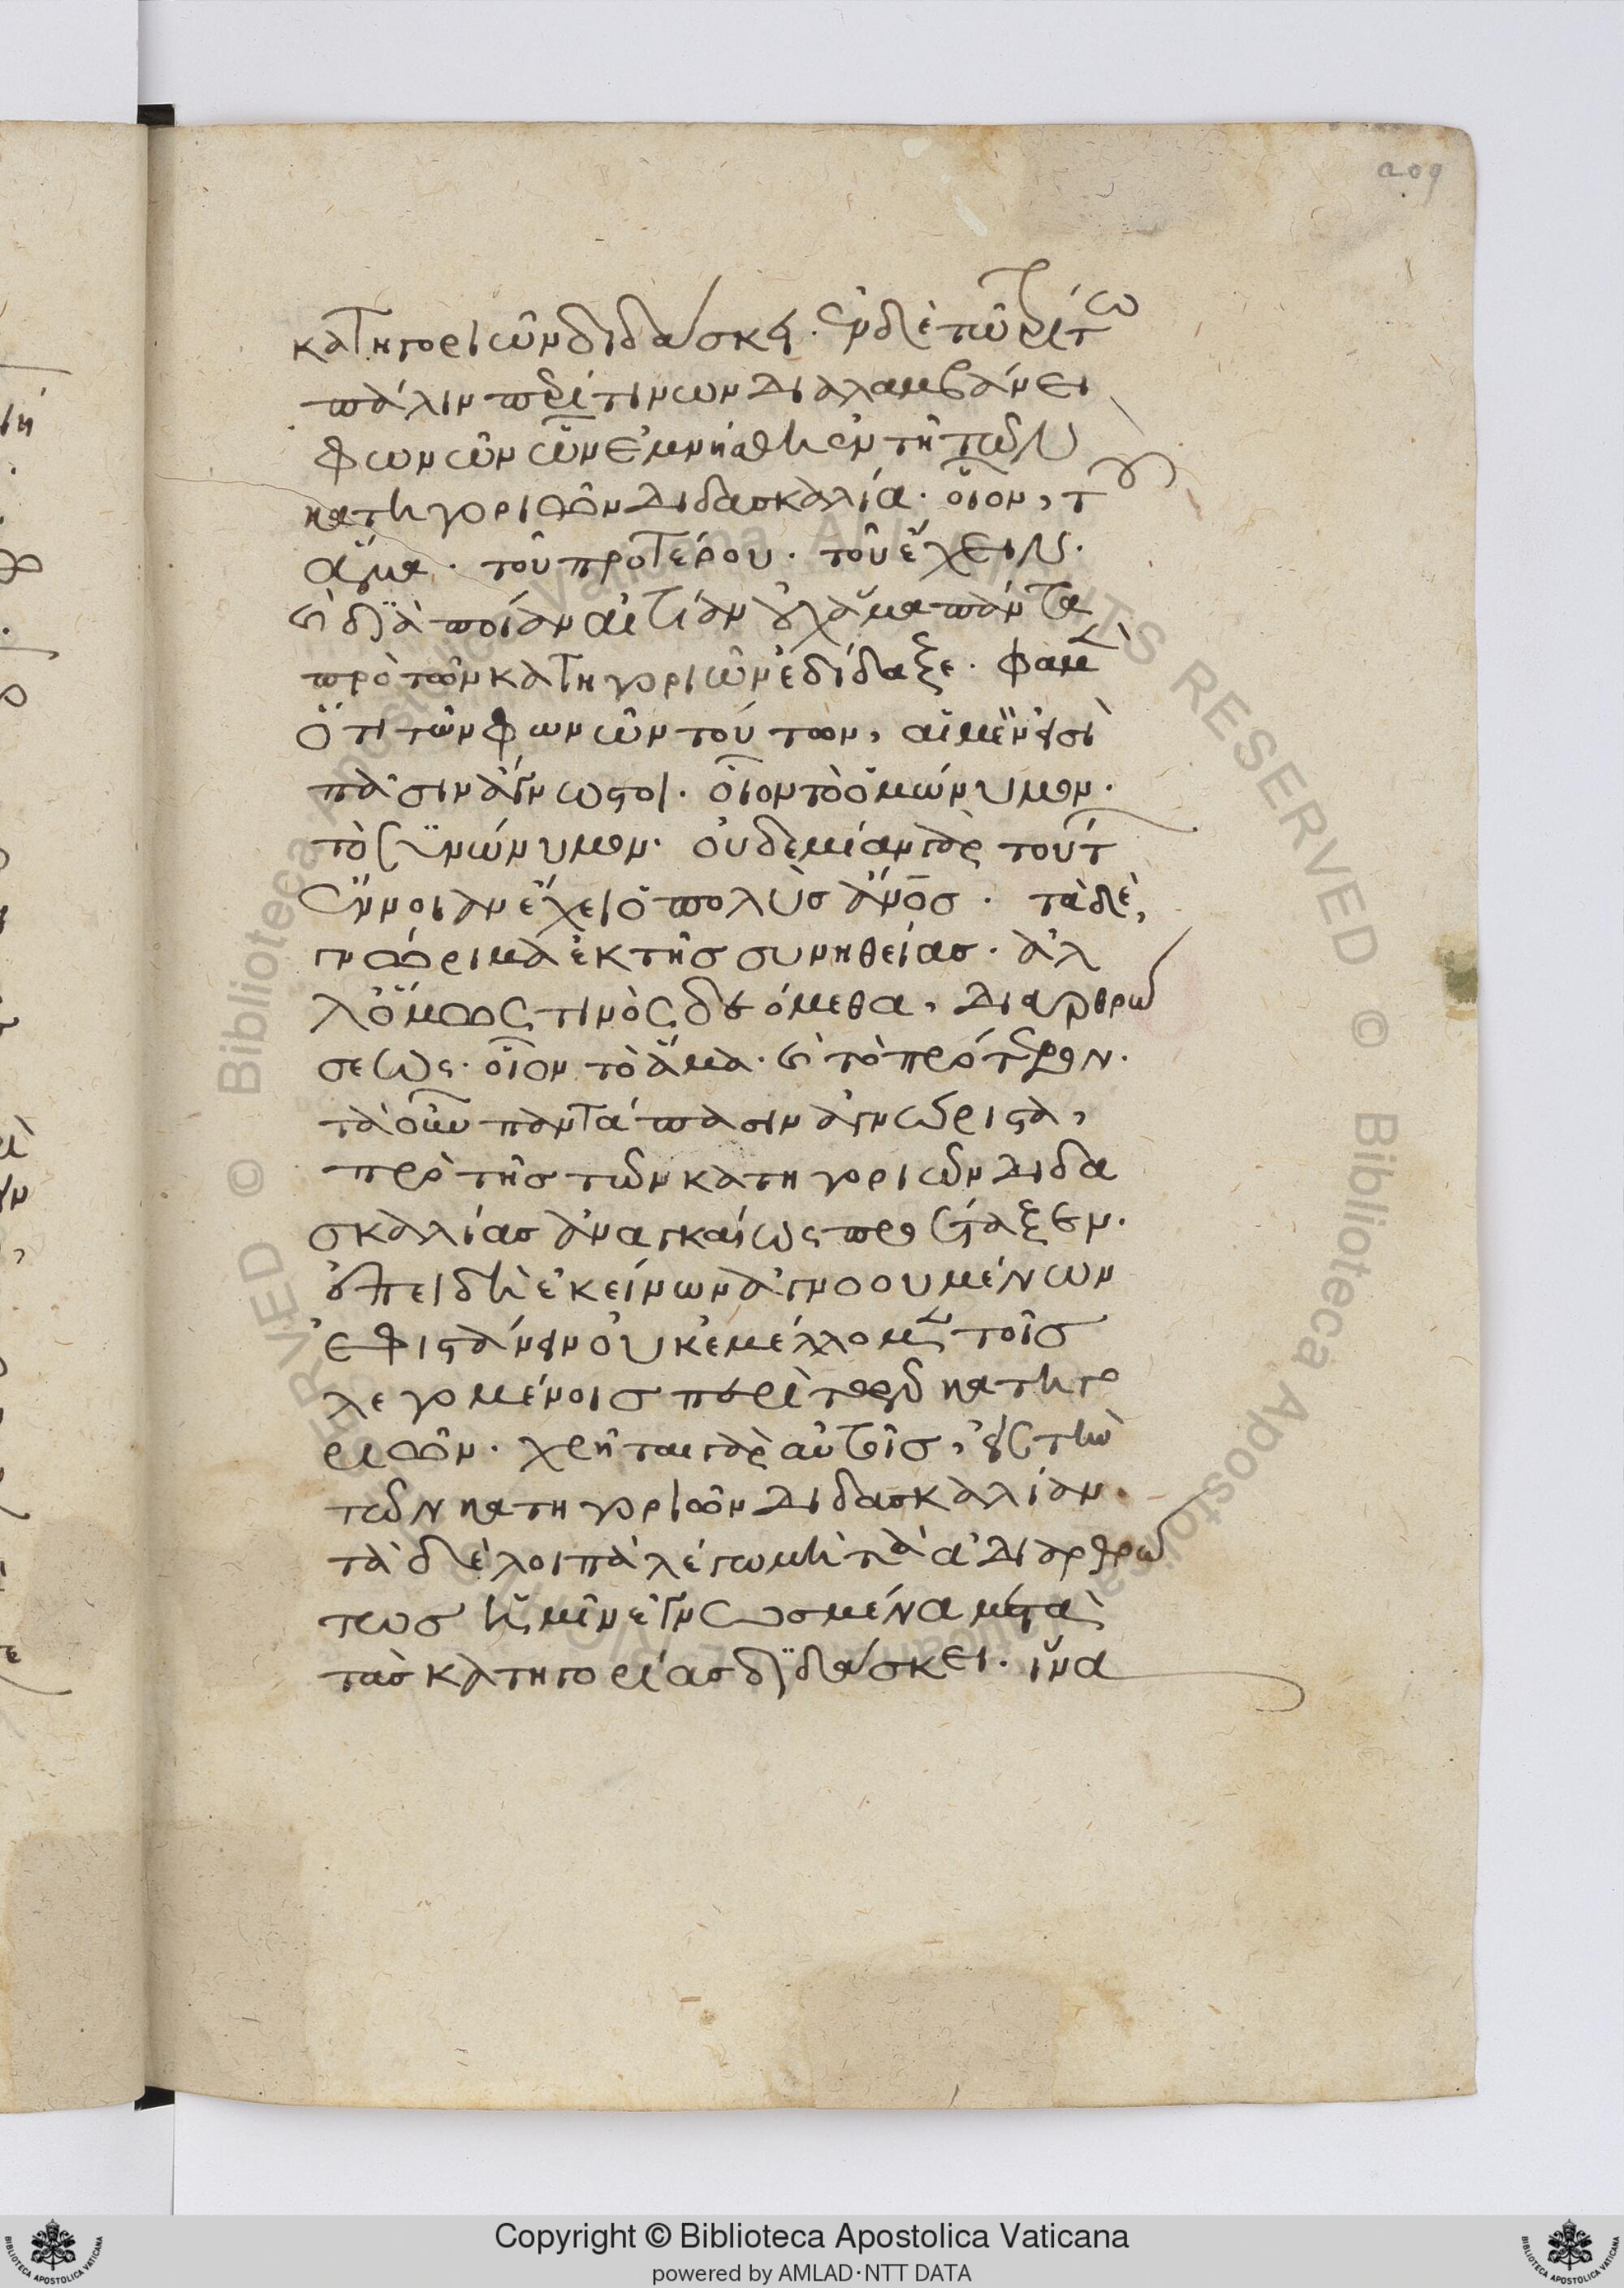 209
κατηγοριῶν διδάσκει. ἐν δὲ τῶ τρίτω
πάλιν περί τινων διαλαμβάνει
φωνῶν ὧν ἐμνήσθη ἐν τῆ τῶν
κατηγοριῶν διδασκαλία. οἷον, τοῦ
ἅμα. τοῦ προτέρου. τοῦ ἔχειν.
καὶ διὰ ποίαν αἰτίαν οὐχ ἅμα πάντα
πρὸ τῶν κατηγοριῶν ἐδίδαξε. φαμὲν
ὅτι τῶν φωνῶν τούτων, αἱ μὲν εἰσὶ
πᾶσιν ἄγνωστοι. οἷον τὸ ὁμώνυμον.
τὸ συνώνυμον. οὐδεμίαν γὰρ τούτων
ἔννοιαν ἔχει ὁ πολὺς ἄνος. τὰ δὲ,
γνώριμα ἐκ τῆς συνηθείας. ἀλ
λ' ὅμως τινὸς δεόμεθα, διαρθρώ
σεως. οἷον τὸ ἅμα. καὶ τὸ πρότερον.
τὰ οὖν παντάπασιν ἀγνώριστα,
πρὸ τῆς τῶν κατηγοριῶν διδα
σκαλίας ἀναγκαίως προέταξεν.
ἐπειδὴ ἐκείνων ἀγνοουμένων
ἐφιστάνειν οὐκ ἐμέλλομεν τοῖς
λεγομένοις περὶ τῶν κατηγο
ριῶν. χρῆται γὰρ αὐτοῖς, εἰς τὴν
τῶν κατηγοριῶν διδασκαλίαν.
τὰ δὲ λοιπὰ λέγω δὴ τὰ ἀδιαρθρώ
τως ἡμῖν ἐγνωσμένα μετὰ
τὰς κατηγορίας διδάσκει. ἵνα
Copyright © Biblioteca Apostolica Vaticana
powered by AMLAD·NTT DATA